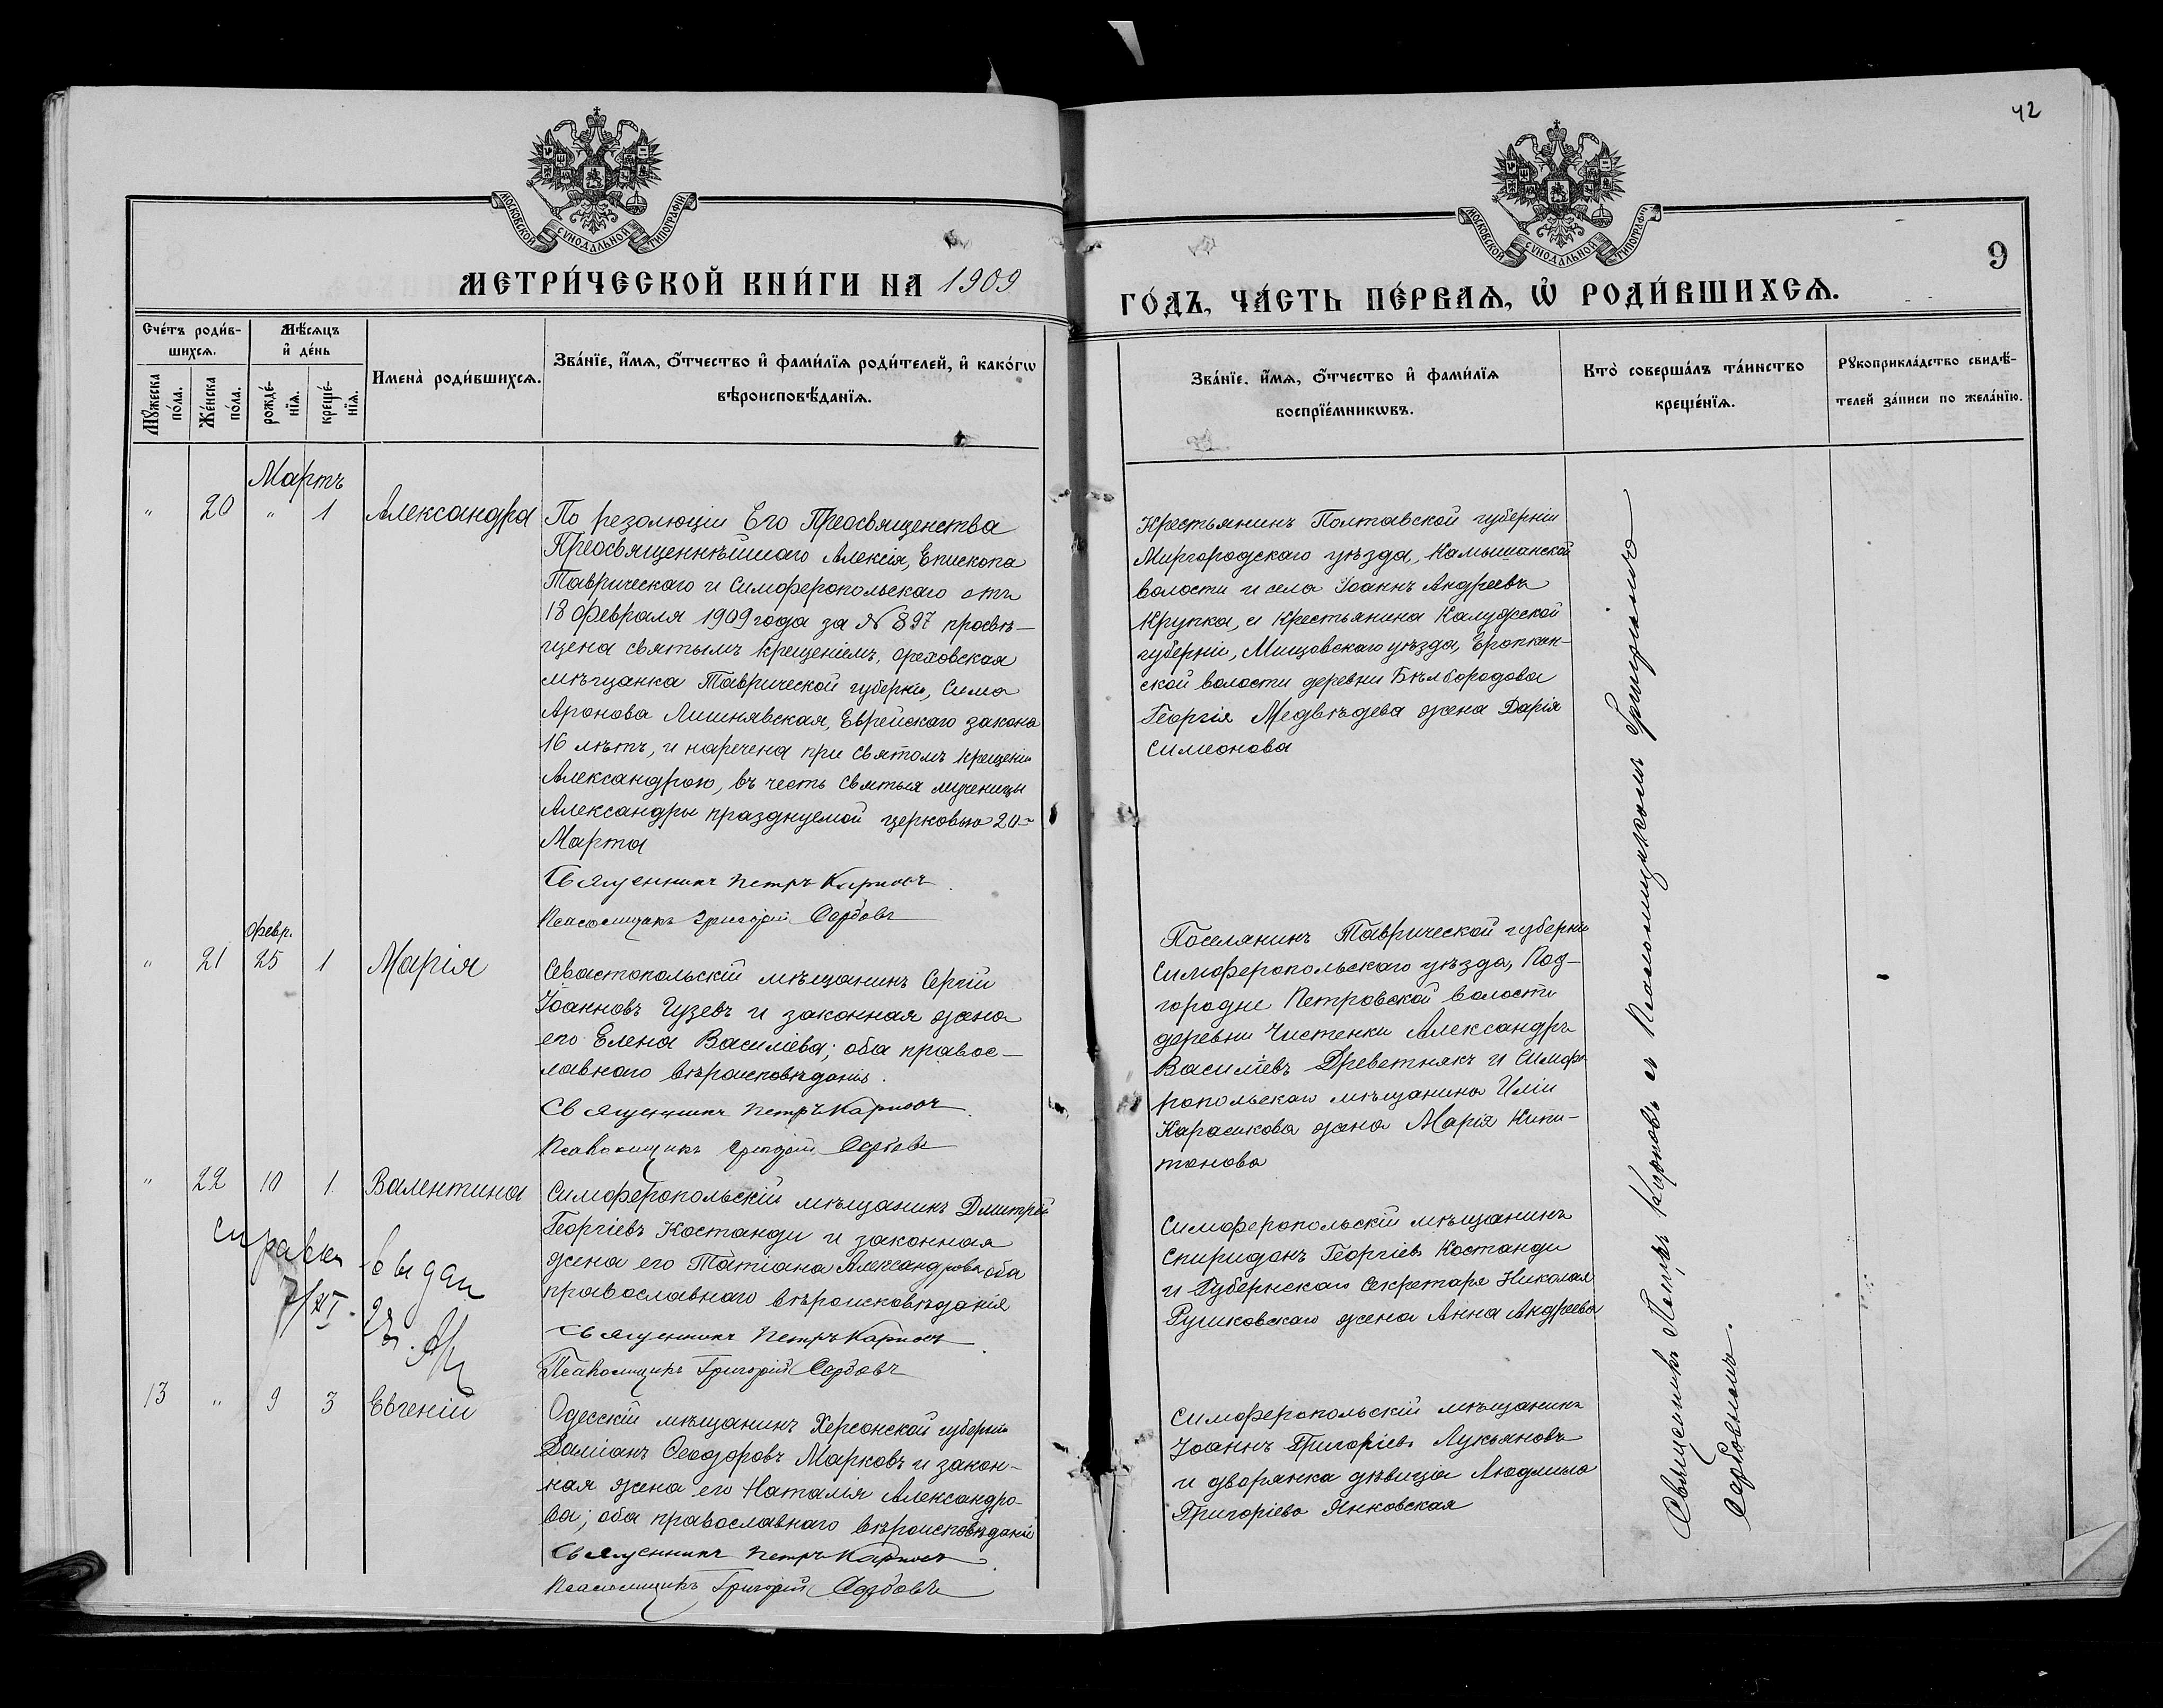 42
МОСКОВСКОЙ СѴНОДАЛЬНОЙ ТИПОГРАФІИ
МОСКОВСКОЙ СѴНОДАЛЬНОЙ ТИПОГРАФІИ
9
МЕТРИ́ЧЕСКОЙ КНИ́ГИ НА 1909
ГО́ДЪ, ЧА́СТЬ ПЕ́РВАѦ, Ѡ҆ РОДИ́ВШИХСѦ.
Сче́тъ роди́в-
шихсѧ.
Мꙋ́жеска по́ла.
Же́нска по́ла.
Мѣ́сѧцъ
и҆ де́нь
рожде́-
нїѧ.
креще́-
нїѧ.
Имена̀ роди́вшихсѧ.
Зва́нїе, и҆́мѧ, ѻ҆́тчество и҆ фами́лїѧ роди́телей, и҆ како́гѡ
вѣроисповѣ́данїѧ.
Зва́нїе, и҆́мѧ, ѻ҆́тчество и҆ фами́лїѧ
воспрїе́мникѡвъ.
Кто̀ соверша́лъ та́инство
креще́нїѧ.
Рꙋкоприкла́дство свидѣ́-
телей за́писи по жела́нїю.
Мартъ
" 20 " 1 Александра
По резолюціи Его Преосвященства
Преосвященнѣйшаго Алексія, Епископа
Таврическаго и Симферопольскаго отъ
18 февраля 1909 года за № 897 просвѣ-
щена святымъ крещеніемъ, ореховская
мѣщанка Таврической губерніи, Сима
Аронова Лишнявская, Еврейскаго закона
16 лѣтъ, и наречена при святомъ крещеніи
Александрою, въ честь святыя мученицы
Александры празднуемой церковью 20-
Марта
Священникъ Петръ Карповъ
Псаломщикъ Григорій Сербовъ
Крестьянинъ Полтавской губерніи
Миргородскаго уѣзда, Камышанской
волости и села Іоаннъ Андреевъ
Крупка, и крестьянина Калужской
губерніи, Мищовскаго уѣзда, Еропкин-
ской волости деревни Бѣлбородова
Георгія Медвѣдева жена Дарія
Симеонова
февр.
" 21 25 1 Марія
Севастопольскій мѣщанинъ Сергій
Іоанновъ Гузевъ и законная жена
его Елена Василіева; оба правос-
лавнаго вѣроисповѣданія.
Священникъ Петръ Карповъ
Псаломщикъ Григорій Сербовъ
Поселянинъ Таврической губерніи
Симферопольскаго уѣзда, Под-
городне Петровской волости
деревни Чистенки Александръ
Василіевъ Древетнякъ и Симфе-
ропольскаго мѣщанина Иліи
Карасикова жена Марія Капи-
тонова
" 22 10 1 Валентина
справка выдан
7/XI
Симферопольскій мѣщанинъ Дмитрій
Георгіевъ Костанди и законная
жена его Татіана Александрова оба
православнаго вѣроисповѣданія
Священникъ Петръ Карповъ
Псаломщикъ Григорій Сербовъ
Симферопольскій мѣщанинъ
Спиридонъ Георгіевъ Костанди
и Губернскаго Секретаря Николая
Рушковскаго жена Анна Андреева
13 " 9 3 Евгеній
Одесскій мѣщанинъ Херсонской губерніи
Даміанъ Ѳеодоровъ Марковъ и закон-
ная жена его Наталія Александро-
ва; оба православнаго вѣроисповѣданія
Священникъ Петръ Карповъ
Псаломщикъ Григорій Сербовъ
Симферопольскій мѣщанинъ
Іоаннъ Григоріевъ Лукьяновъ
и дворянка дѣвица Людмила
Григоріева Янковская
Священникъ Петръ Карповъ съ Псаломщикомъ Григоріемъ
Сербовымъ.